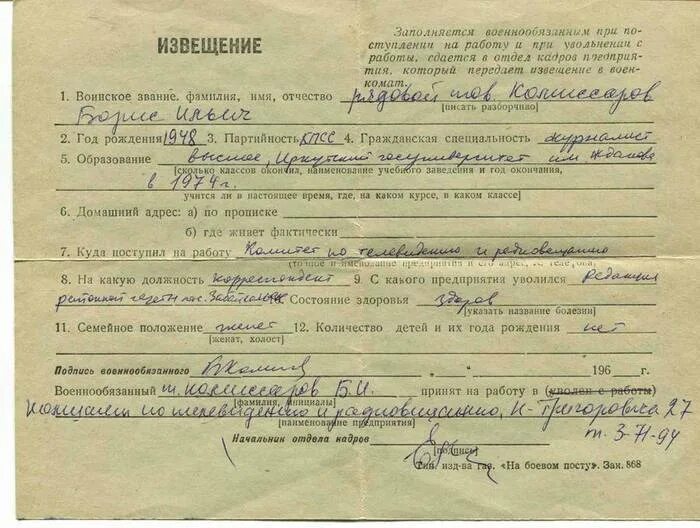 ИЗВЕЩЕНИЕ
Заполняется военнообязанным при по-
ступлении на работу и при увольнении с
работы, сдается в отдел кадров предприя-
тия, который передает извещение в воен-
комат.
1. Воинское звание, фамилия, имя, отчество рядовой тов. Комиссаров
[писать разборчиво]
Борис Ильич
2. Год рождения 1948 3. Партийность КПСС 4. Гражданская специальность журналист
5. Образование высшее, Иркутский госуниверситет им Жданова
[сколько классов окончил, наименование учебного заведения и год окончания,
в 1974г.
учится ли в настоящее время, где, на каком курсе, в каком классе]
6. Домашний адрес: а) по прописке
б) где живет фактически
7. Куда поступил на работу Комитет по телевидению и радиовещанию
(точное наименование предприятия и его адрес, № телефона)
8. На какую должность корреспондент 9. С какого предприятия уволился редакция
районной газеты пос. 10. Состояние здоровья здоров
[указать название болезни]
11. Семейное положение женат 12. Количество детей и их года рождения нет
[женат, холост]
Подпись военнообязанного 196 г.
Военнообязанный т. Комиссаров Б.И. принят на работу в (уволен с работы)
[фамилия, инициалы]
по телевидению и радиовещанию, Григоровича 27
[наименование предприятия]
т. 3-71-94
Начальник отдела кадров
[подпись]
Тип. изд-ва газ. «На боевом посту». Зак. 868